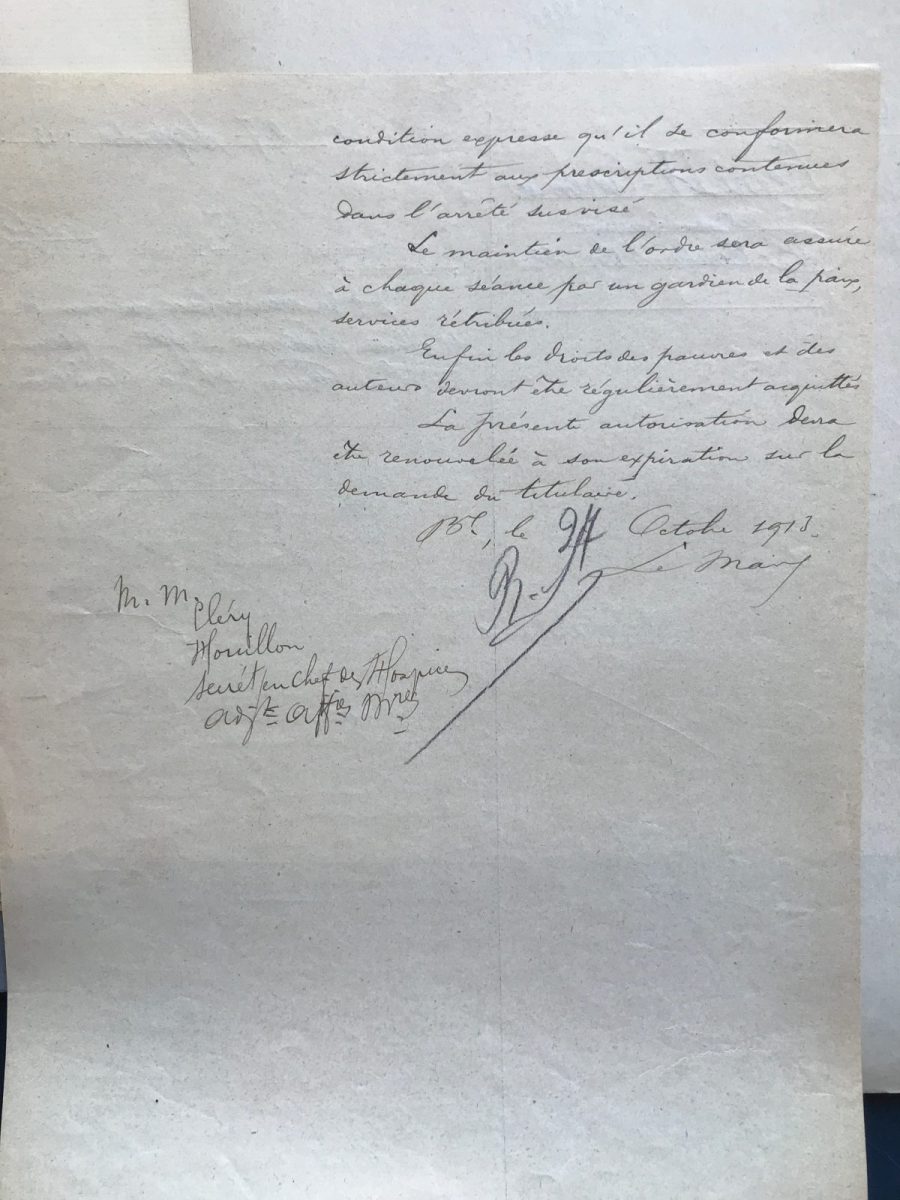 condition expresse qu'il se conformera
strictement aux prescriptions contenues
dans l'arrêté susvisé
Le maintien de l'ordre sera assuré
à chaque séance par un gardien de la paix,
services rétribués.
Enfin les droits des pauvres et des
auteurs devront être régulièrement acquittés
La présente autorisation devra
être renouvelée à son expiration sur la
demande du titulaire.
le 24 Octobre 1913.
Le Maire
M. M. Cléry
Mouillon
Secrét en Chef des Hospices
adjt aff res